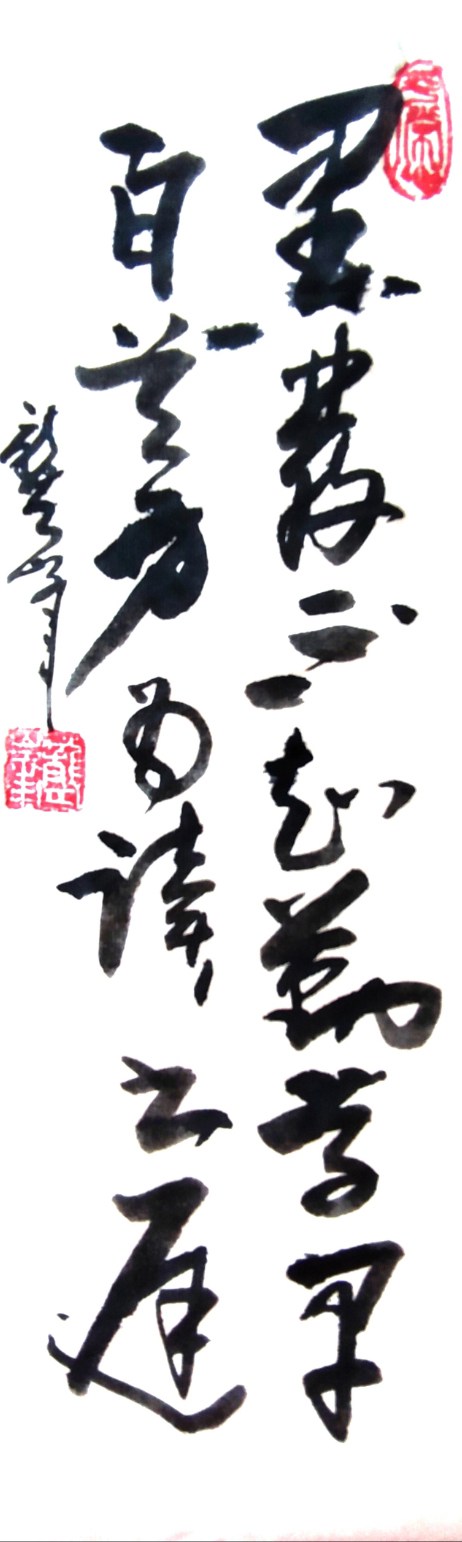 黑發不知勤學早
白首方悔讀書遲